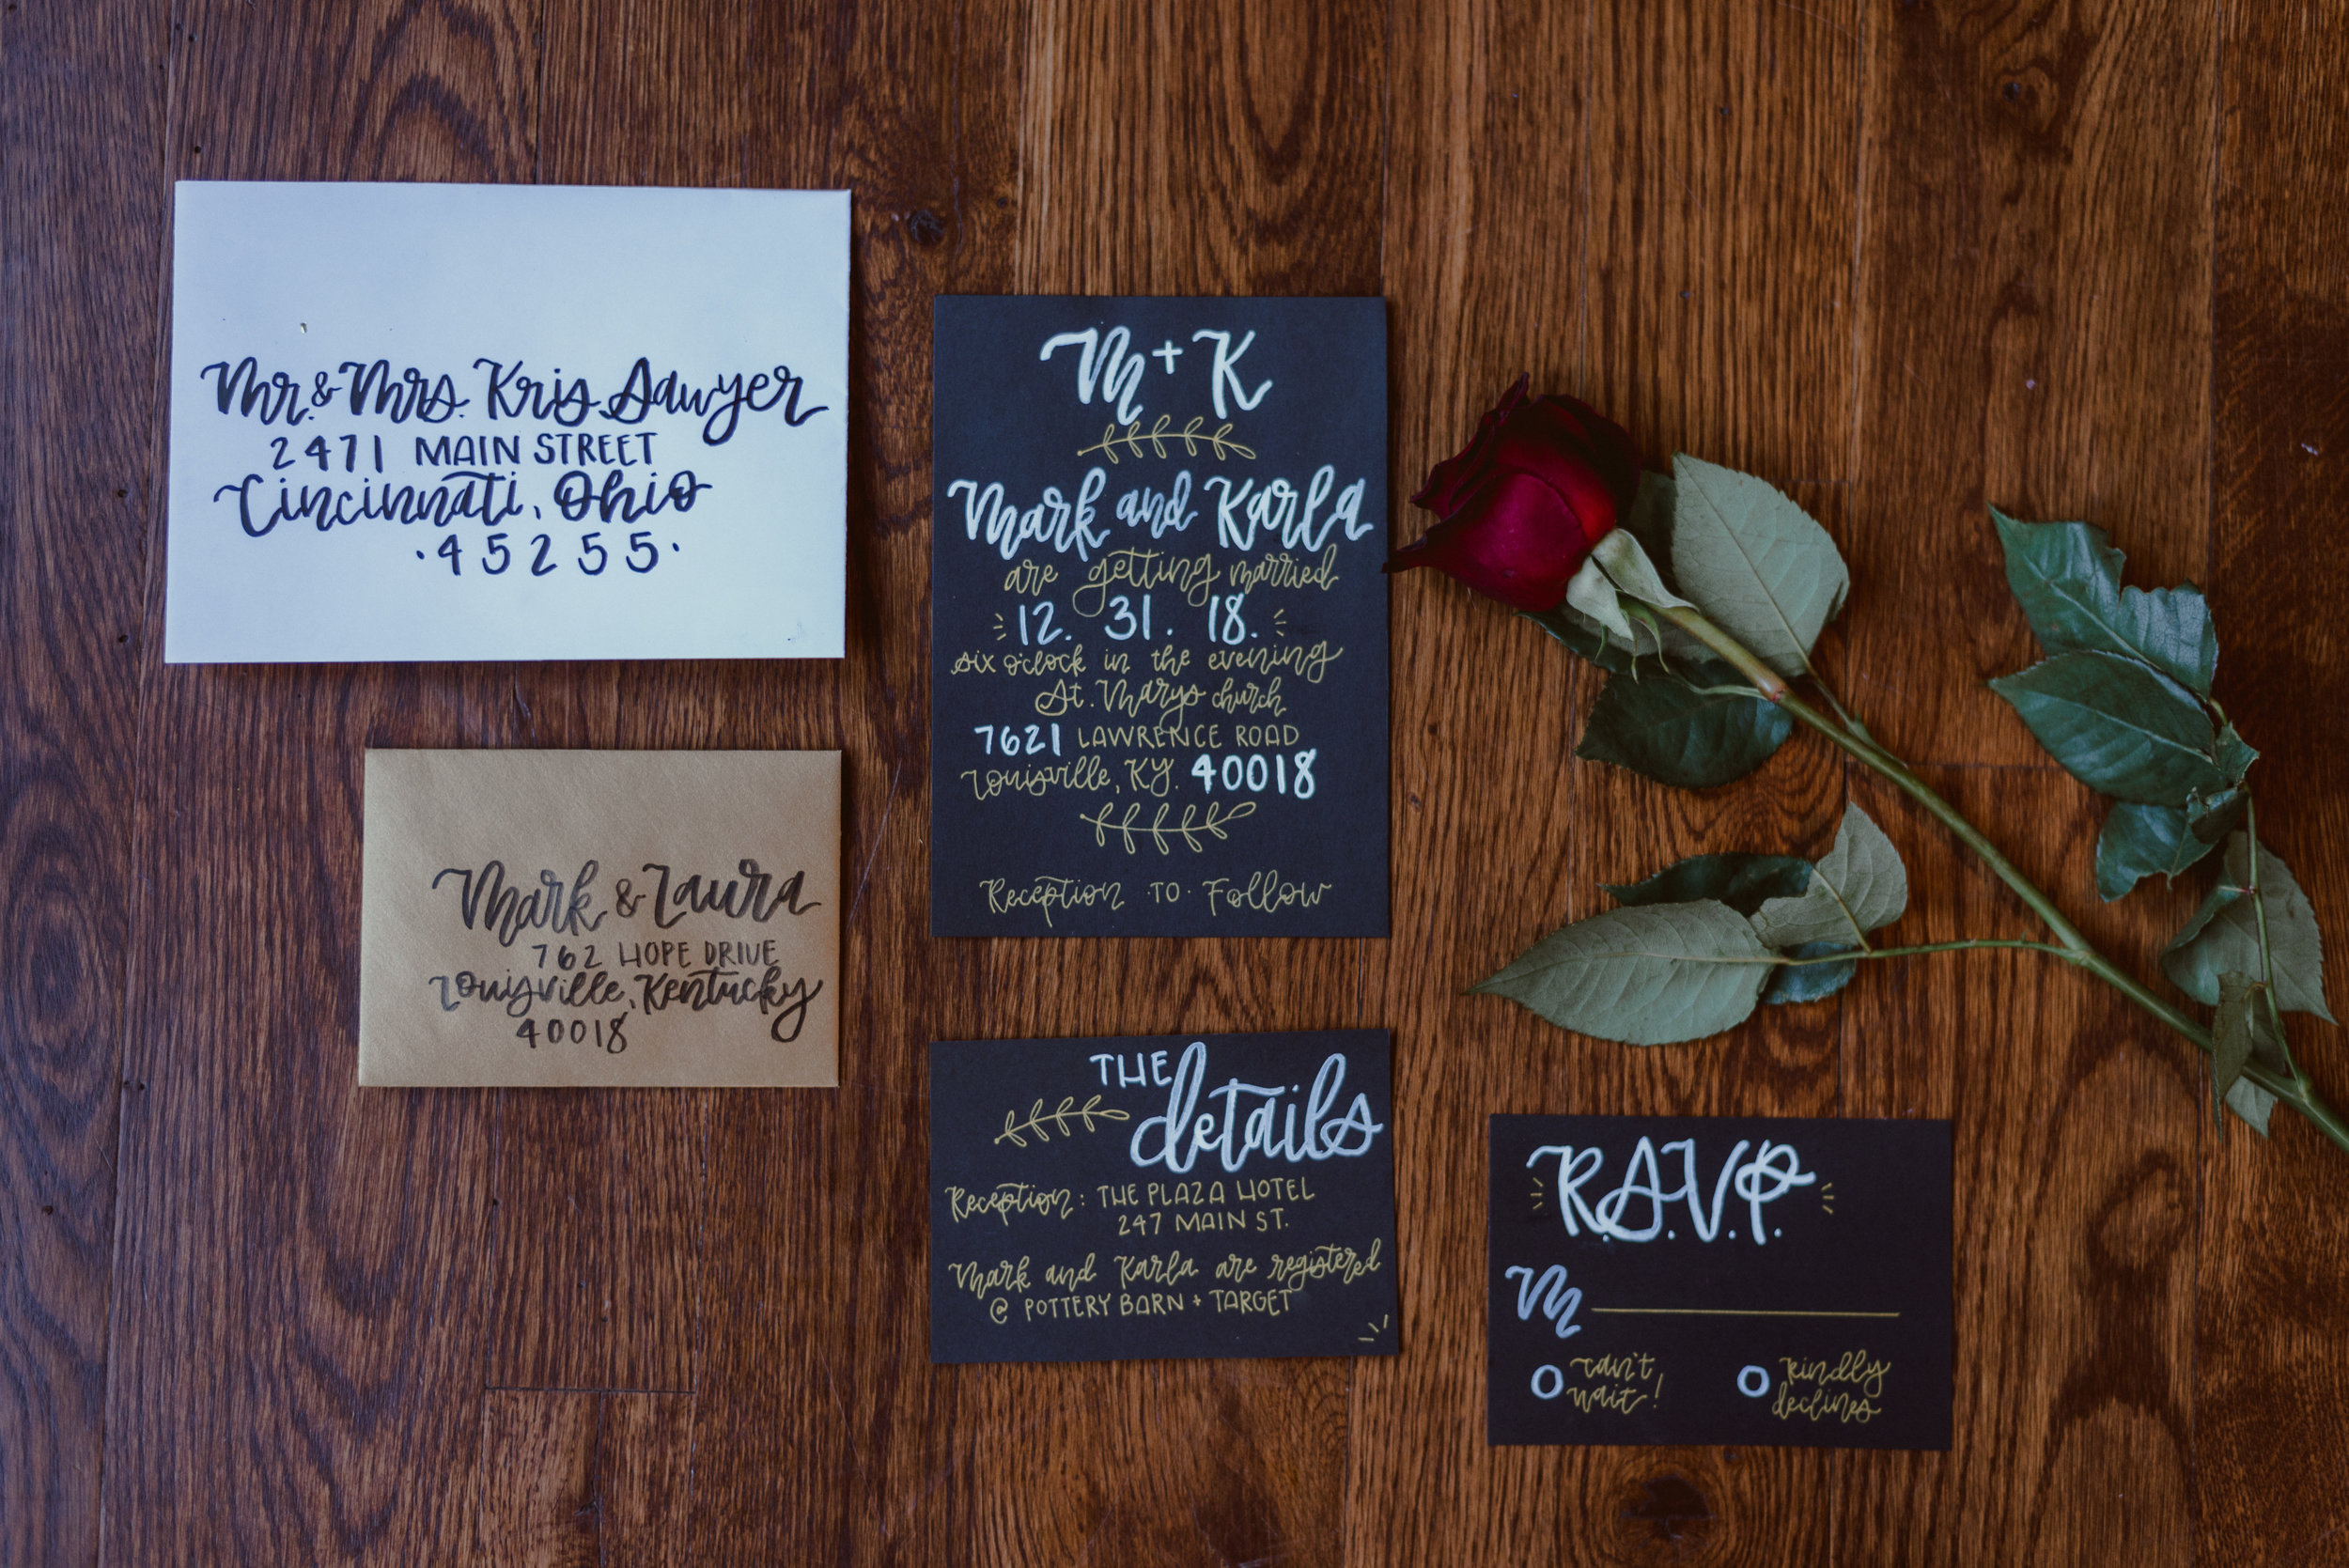 Mr. & Mrs. Kris Sawyer
2471 MAIN STREET
Cincinnati, Ohio
·45255·
Mark & Laura
762 HOPE DRIVE
Louisville, Kentucky
40018
M + K
Mark and Karla
are getting married
12. 31. 18.
six o'clock in the evening
St. Marys church
7621 LAWRENCE ROAD
Louisville, KY. 40018
Reception ·TO· Follow
THE
details
Reception: THE PLAZA HOTEL
247 MAIN ST.
Mark and Karla are registered
@ POTTERY BARN + TARGET
R.S.V.P.
M
can't
wait!
kindly
declines